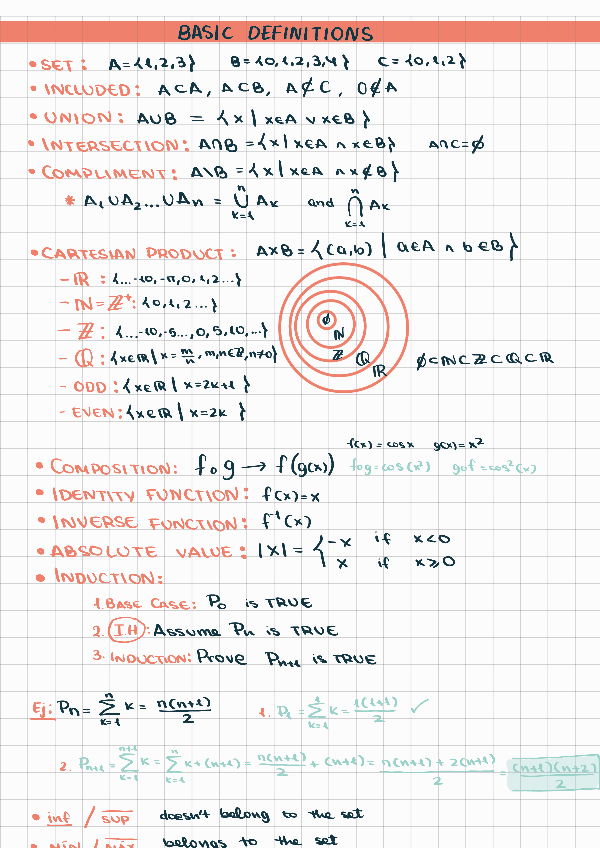 BASIC DEFINITIONS
• SET: A={1,2,3} B={0,1,2,3,4} C={0,1,2}
• INCLUDED: A⊂A, A⊂B, A⊄C, 0∉A
• UNION: A∪B = {x | x∈A ∨ x∈B}
• INTERSECTION: A∩B = {x | x∈A ∧ x∈B} A∩C=∅
• COMPLIMENT: A\B = {x | x∈A ∧ x∉B}
* A₁∪A₂...∪Aₙ = ⋃ₖ₌₁ⁿ Aₖ and ⋂ₖ₌₁ⁿ Aₖ
• CARTESIAN PRODUCT: A×B = {(a,b) | a∈A ∧ b∈B}
- ℝ: {...-10,-π,0,1,2...}
- ℕ=ℤ⁺: {0,1,2...}
- ℤ: {...-10,-5...,0,5,10,...}
- ℚ: {x∈ℝ | x=m/n, m,n∈ℤ, n≠0}
- ODD: {x∈ℝ | x=2k+1}
- EVEN: {x∈ℝ | x=2k}
∅ ℕ ℤ ℚ ℝ
∅⊂ℕ⊂ℤ⊂ℚ⊂ℝ
f(x)=cosx g(x)=x²
• COMPOSITION: f∘g → f(g(x)) fog=cos(x²) gof=cos²(x)
• IDENTITY FUNCTION: f(x)=x
• INVERSE FUNCTION: f⁻¹(x)
• ABSOLUTE VALUE: |x| = { -x if x<0
x if x≥0
• INDUCTION:
1. BASE CASE: P₀ is TRUE
2. I.H: Assume Pₙ is TRUE
3. INDUCTION: Prove Pₙ₊₁ is TRUE
Ej: Pₙ = ∑ₖ₌₁ⁿ k = n(n+1)/2 1. P₁ = ∑ₖ₌₁¹ k = 1(1+1)/2 ✓
2. Pₙ₊₁ = ∑ₖ₌₁ⁿ⁺¹ k = ∑ₖ₌₁ⁿ k+(n+1) = n(n+1)/2 + (n+1) = n(n+1)+2(n+1)/2 = (n+1)(n+2)/2
• inf / sup doesn't belong to the set
• MIN / MAX belongs to the set